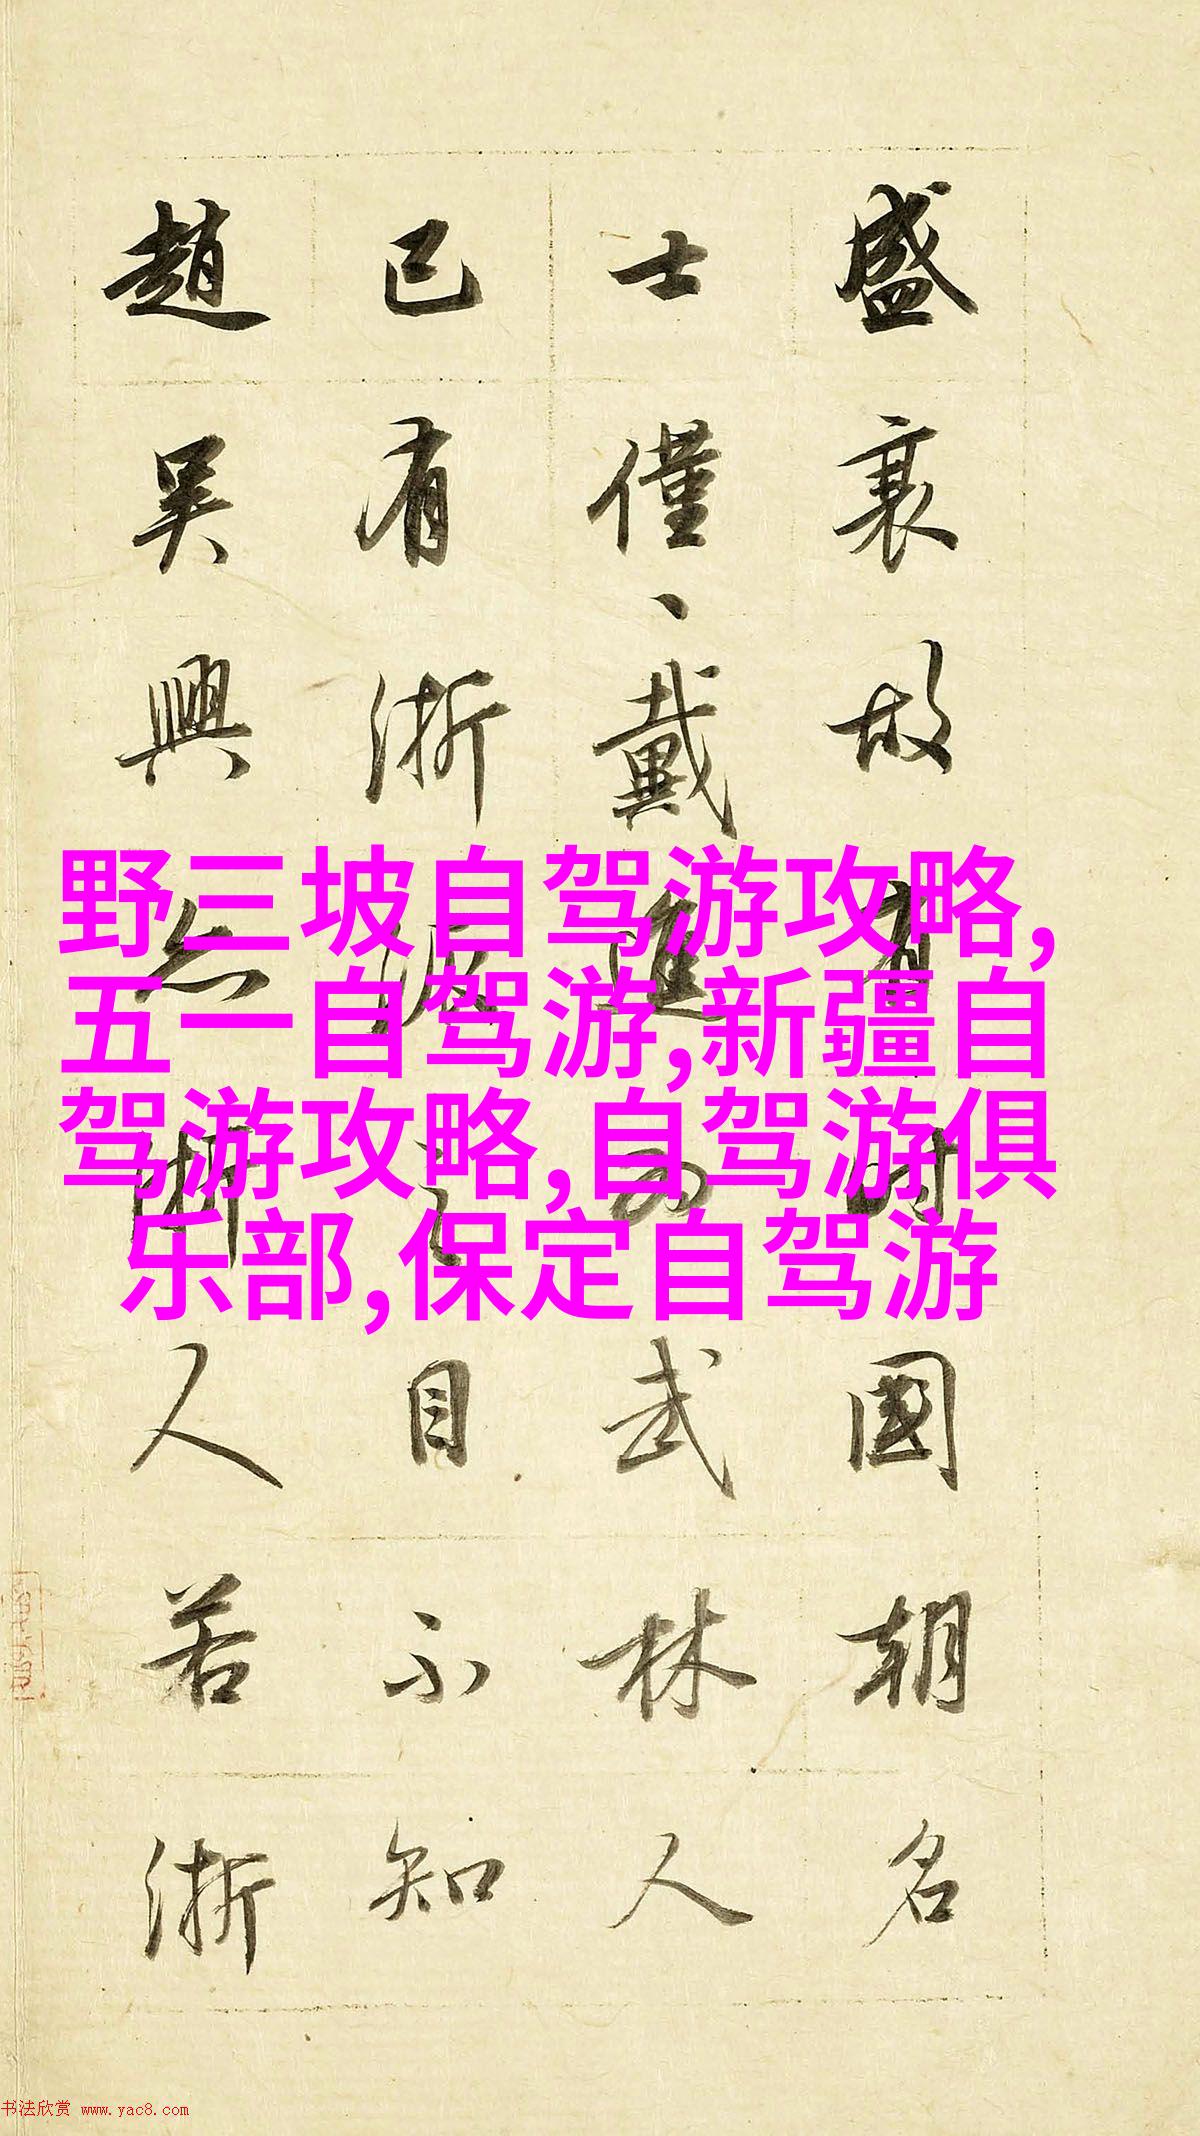 盛衰故有時國朝名
士僅、戴進為武林人
已有浙派之目不知
趙吳興亦浙人若浙
野三坡自驾游攻略,
五一自驾游,新疆自
驾游攻略,自驾游俱
乐部,保定自驾游
书法欣赏 www.yac8.com